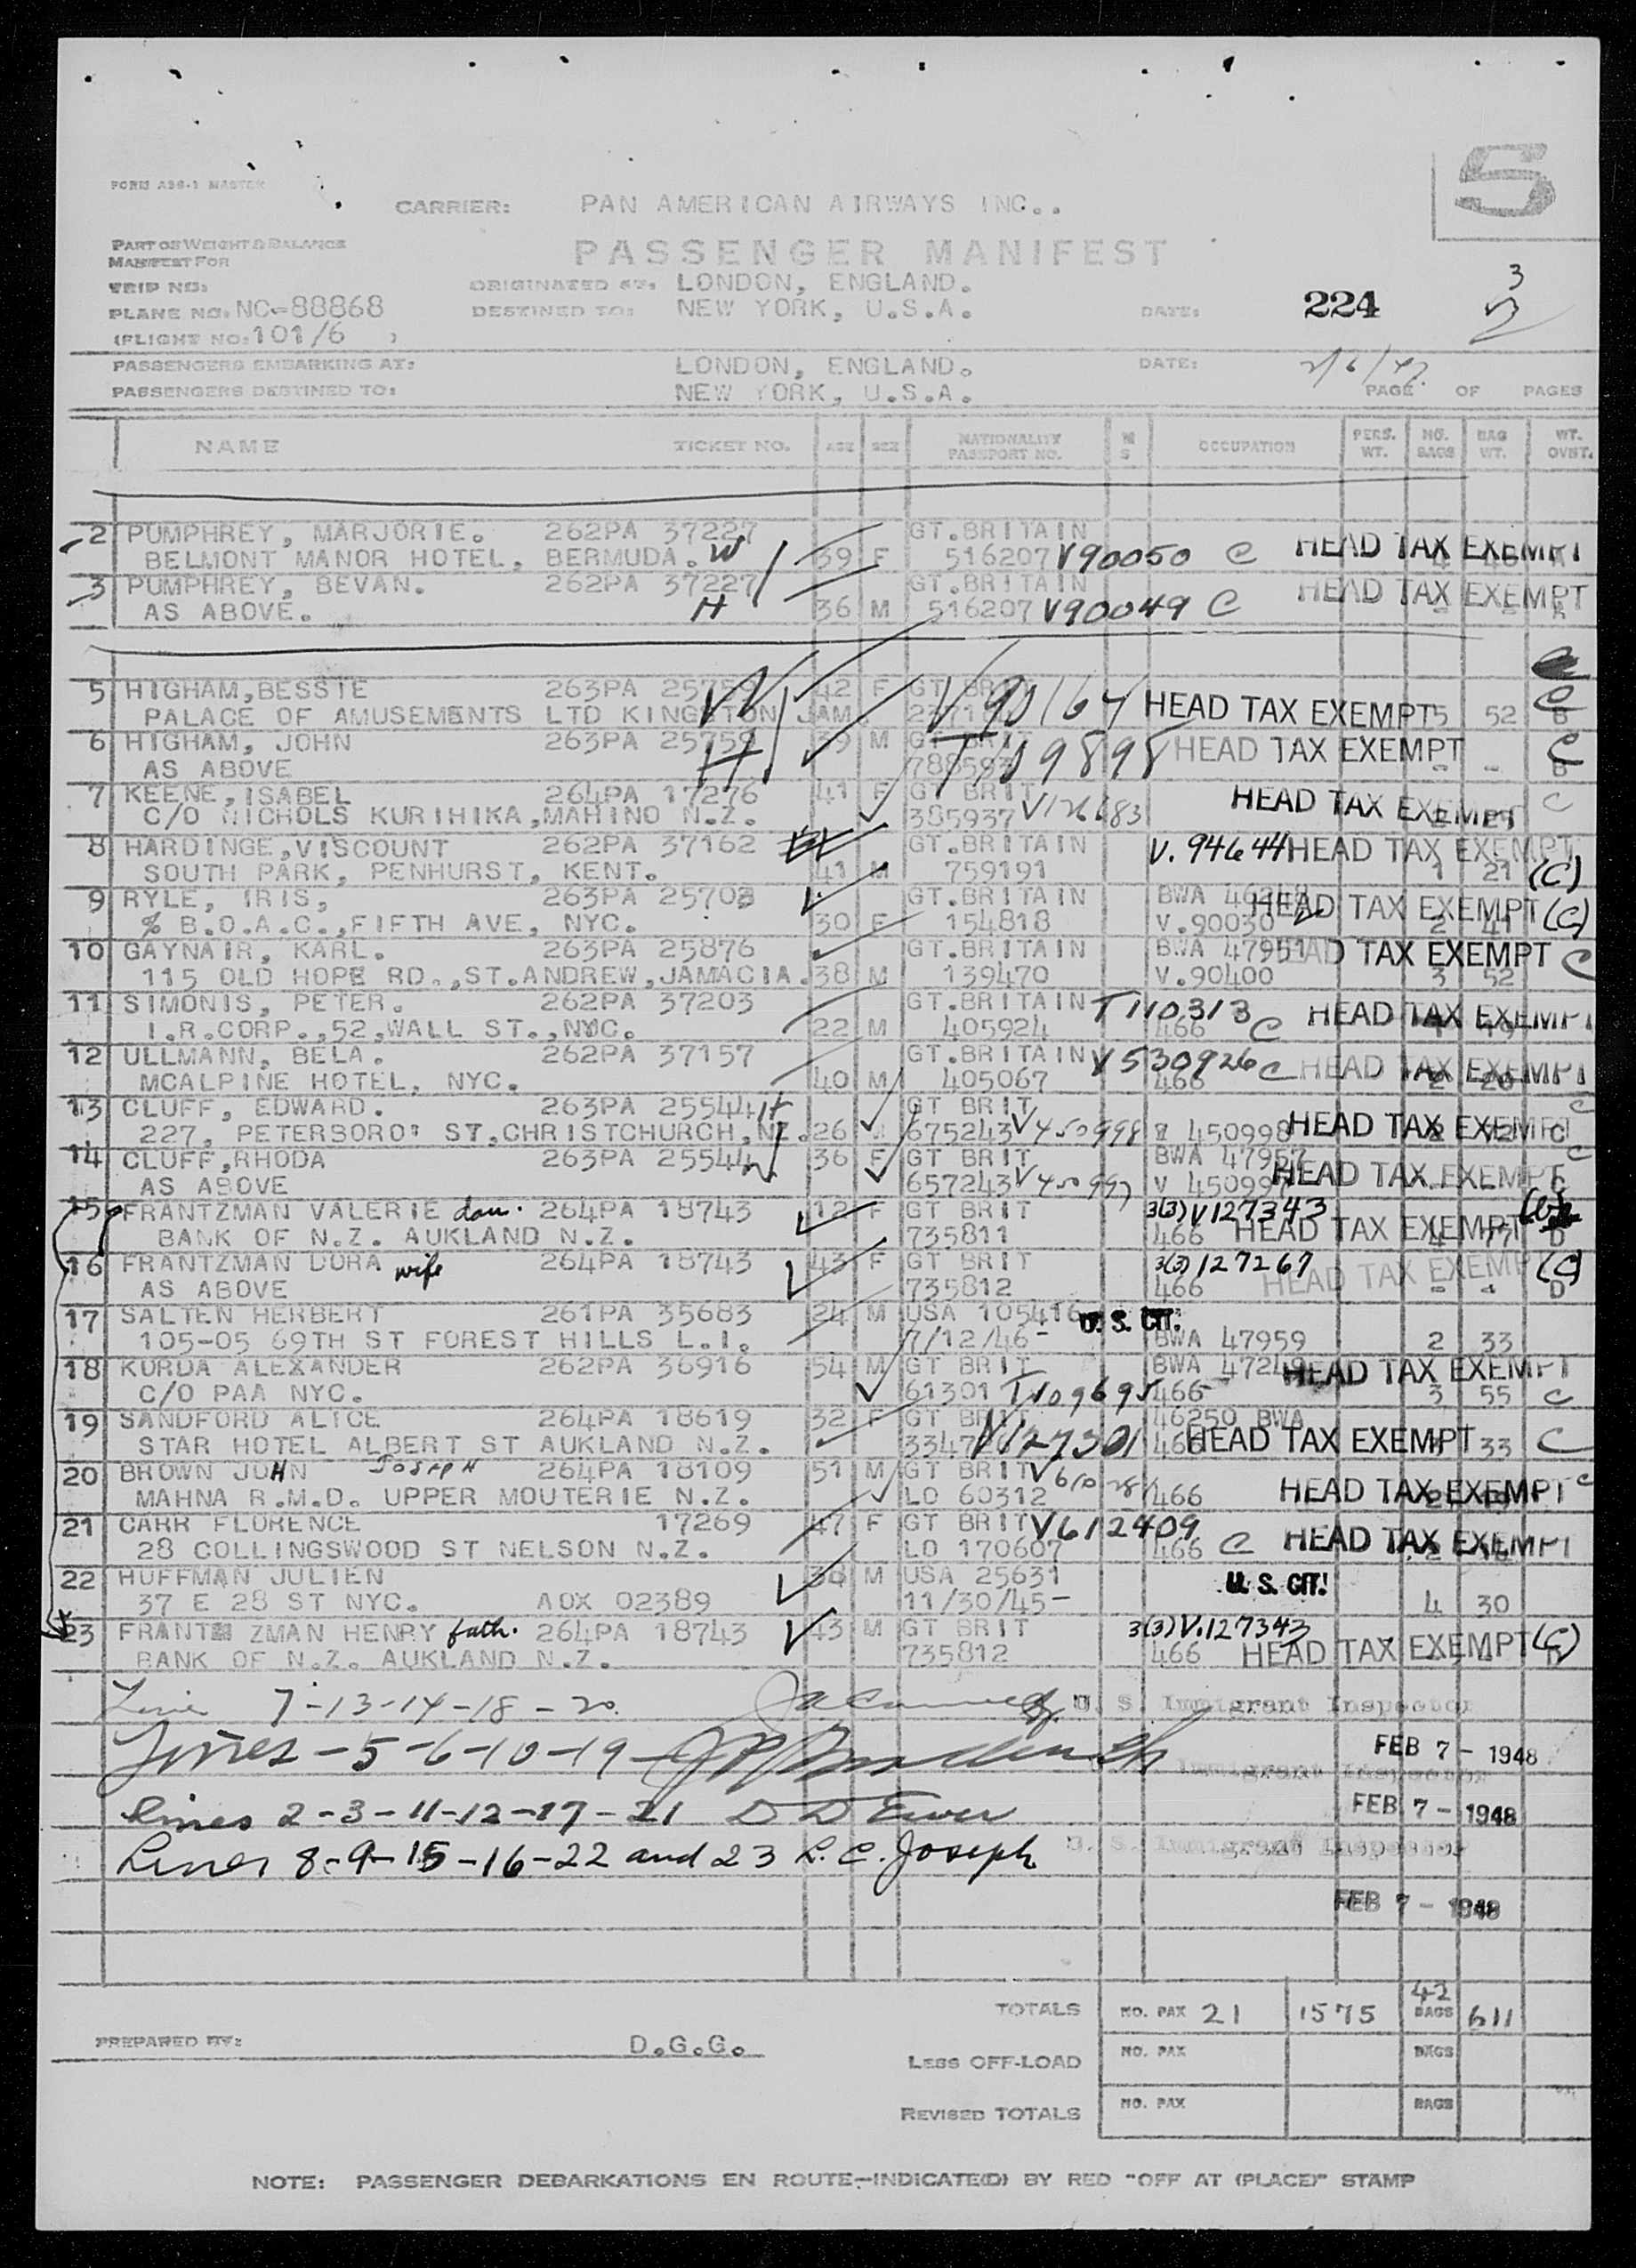 5
FORM ASG-1 MASTER
CARRIER: PAN AMERICAN AIRWAYS INC..
PART OF WEIGHT & BALANCE
MANIFEST FOR
PASSENGER MANIFEST
3
TRIP NO:
ORIGINATED AT: LONDON, ENGLAND.
PLANE NO. NC-88868 DESTINED TO: NEW YORK, U.S.A. DATE: 224
(FLIGHT NO: 101/6 )
PASSENGERS EMBARKING AT: LONDON, ENGLAND. DATE: 2/6/47.
PASSENGERS DESTINED TO: NEW YORK, U.S.A. PAGE OF PAGES
NAME TICKET NO. AGE SEX NATIONALITY PASSPORT NO. M S OCCUPATION PERS. WT. NO. BAGS BAG WT. WT. OVST.
2 PUMPHREY, MARJORIE. 262PA 37227 GT.BRITAIN HEAD TAX EXEMPT
BELMONT MANOR HOTEL, BERMUDA. W 39 F 516207 V90050 C
3 PUMPHREY, BEVAN. 262PA 37227 GT.BRITAIN HEAD TAX EXEMPT
AS ABOVE. H 36 M 516207 V90049 C
5 HIGHAM,BESSIE 263PA 25759 W 42 F GT BRIT V90164 HEAD TAX EXEMPT C
PALACE OF AMUSEMENTS LTD KINGSTON JAM. 5 52 B
6 HIGHAM, JOHN 263PA 25759 H 39 M GT BRIT HEAD TAX EXEMPT C
AS ABOVE B
7 KEENE,ISABEL 264PA 17276 41 F GT BRIT HEAD TAX EXEMPT C
C/O NICHOLS KURIHIKA,MAHINO N.Z. 385937 V126683
8 HARDINGE,VISCOUNT 262PA 37162 GT.BRITAIN V.94644 HEAD TAX EXEMPT
SOUTH PARK, PENHURST, KENT. 41 M 759191 1 21 (C)
9 RYLE, IRIS, 263PA 25703 GT.BRITAIN BWA HEAD TAX EXEMPT (C)
% B.O.A.C.,FIFTH AVE, NYC. 30 F 154818 V.90030 2 41
10 GAYNAIR, KARL. 263PA 25876 GT.BRITAIN BWA 47951 HEAD TAX EXEMPT C
115 OLD HOPE RD.,ST.ANDREW,JAMACIA. 38 M 139470 V.90400 3 52
11 SIMONIS, PETER. 262PA 37203 GT.BRITAIN T110313 HEAD TAX EXEMPT
I.R.CORP.,52,WALL ST.,NYC. 22 M 405924 466 C
12 ULLMANN, BELA. 262PA 37157 GT.BRITAIN V530926 C HEAD TAX EXEMPT
MCALPINE HOTEL, NYC. 40 M 405067 466
13 CLUFF, EDWARD. 263PA 25544 H GT BRIT C
227, PETERSBORO' ST.CHRISTCHURCH,NZ. 26 M 675243 V450998 V 450998 HEAD TAX EXEMPT C
14 CLUFF,RHODA 263PA 25544 W 36 F GT BRIT BWA 47957 HEAD TAX EXEMPT C
AS ABOVE 657243 V450997 V 450997 C
15 FRANTZMAN VALERIE dau. 264PA 18743 12 F GT BRIT 3(3) V127343
BANK OF N.Z. AUKLAND N.Z. 735811 466 HEAD TAX EXEMPT D
16 FRANTZMAN DORA wife 264PA 18743 43 F GT BRIT 3(3) 127267 HEAD TAX EXEMPT (C)
AS ABOVE 735812 466 D
17 SALTEN HERBERT 261PA 35683 24 M USA 105416 U. S. CIT.
105-05 69TH ST FOREST HILLS L.I. 7/12/46- BWA 47959 2 33
18 KORDA ALEXANDER 262PA 36916 54 M GT BRIT BWA HEAD TAX EXEMPT
C/O PAA NYC. 61301 T109695 466 3 55 C
19 SANDFORD ALICE 264PA 18619 32 F GT BRIT 46250 BWA
STAR HOTEL ALBERT ST AUKLAND N.Z. V127301 466 HEAD TAX EXEMPT 33 C
20 BROWN JOHN JOSEPH 264PA 18109 51 M GT BRIT HEAD TAX EXEMPT C
MAHNA R.M.D. UPPER MOUTERIE N.Z. LO 60312 466
21 CARR FLORENCE 17269 47 F GT BRIT V612409 HEAD TAX EXEMPT
28 COLLINGSWOOD ST NELSON N.Z. LO 170607 466 C
22 HUFFMAN JULIEN 30 M USA 25631 U. S. CIT!
37 E 28 ST NYC. AOX 02389 11/30/45- 4 30
23 FRANTZMAN HENRY fath. 264PA 18743 43 M GT BRIT 3(3) V.127343
BANK OF N.Z. AUKLAND N.Z. 735812 466 HEAD TAX EXEMPT (C)
Line 7-13-14-18-20. U. S. Immigrant Inspector
Lines-5-6-10-19- Immigrant Inspector FEB 7 - 1948
Lines 2-3-11-12-17-21 D D Ewer FEB 7 - 1948
Lines 8-9-15-16-22 and 23 L.C. Joseph U. S. Immigrant Inspector
FEB 7 - 1948
TOTALS NO. PAX 21 1575 42 BAGS 611
PREPARED BY: D.G.G.
LESS OFF-LOAD NO. PAX BAGS
REVISED TOTALS NO. PAX BAGS
NOTE: PASSENGER DEBARKATIONS EN ROUTE-INDICATE(D) BY RED "OFF AT (PLACE)" STAMP